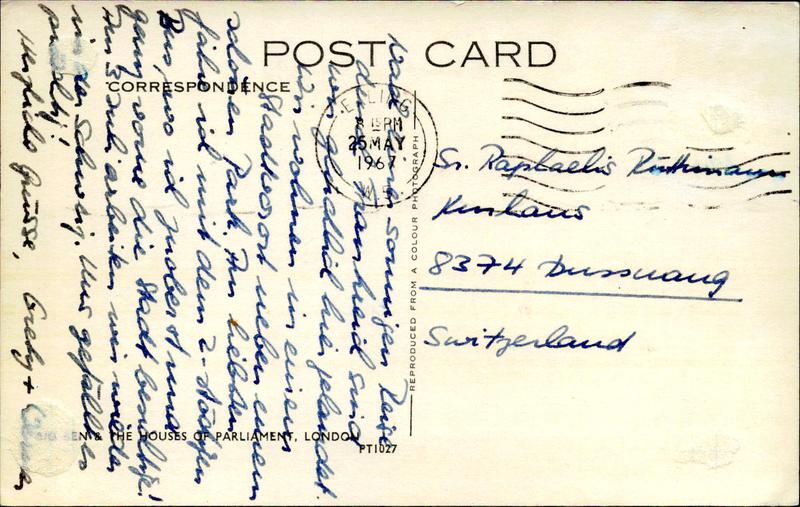 POST CARD
CORRESPONDENCE
EALING
8 15 PM
25 MAY
1967
W.5
Nach einer sonnigen Reise
durch Frankreich sind
wir glücklich hier gelandet.
Wir wohnen in einem
Stadtvorort neben einem
schönen Park. Am liebsten
fahre ich mit dem 2-stöckigen
Bus, wo ich zuoberst und
ganz vorne die Stadt besichtige!
Am 3. Juli arbeiten wir wieder
in der Schweiz. Uns gefällt es
prächtig!
Herzliche Grüsse,
Sr. Raphaelis Rüttimann
Kurhaus
8374 Dussnang
Switzerland
REPRODUCED FROM A COLOUR PHOTOGRAPH
BIG BEN & THE HOUSES OF PARLIAMENT, LONDON
PT1027